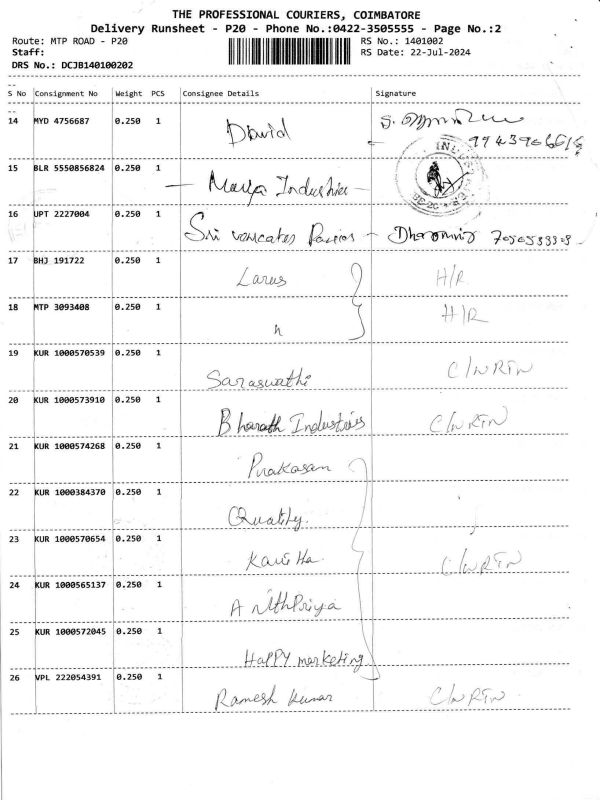 THE PROFESSIONAL COURIERS, COIMBATORE
Delivery Runsheet - P20 - Phone No.:0422-3505555 - Page No.:2
Route: MTP ROAD - P20 RS No.: 1401002
Staff: RS Date: 22-Jul-2024
DRS No.: DCJB140100202
S No Consignment No Weight PCS Consignee Details Signature
14 MYD 4756687 0.250 1 David
15 BLR 5550856824 0.250 1 Industries
16 UPT 2227004 0.250 1 Sri
17 BHJ 191722 0.250 1 Larus H/R
18 MTP 3093408 0.250 1 H/R
19 KUR 1000570539 0.250 1 Saraswathi C/N RTN
20 KUR 1000573910 0.250 1 Bharath Industries C/N RTN
21 KUR 1000574268 0.250 1 Prakasan
22 KUR 1000384370 0.250 1 Quality.
23 KUR 1000570654 0.250 1 C/N RTN
24 KUR 1000565137 0.250 1
25 KUR 1000572045 0.250 1 HaPPY marketing
26 VPL 222054391 0.250 1 Ramesh kumar C/N RTN